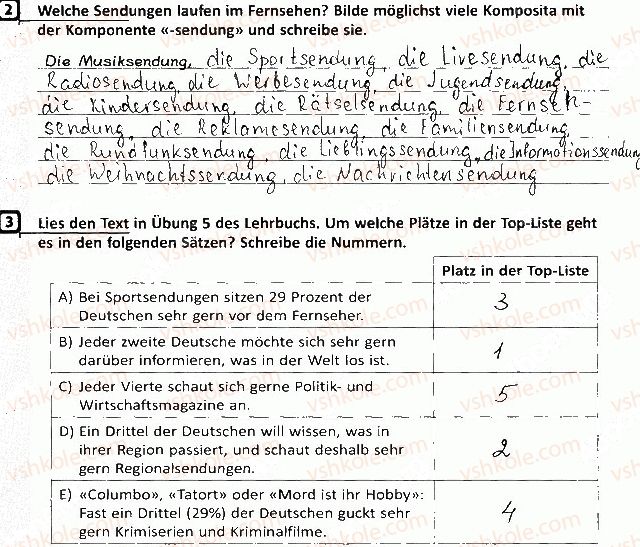 2 Welche Sendungen laufen im Fernsehen? Bilde möglichst viele Komposita mit
der Komponente «-sendung» und schreibe sie.
Die Musiksendung, die Sportsendung, die Livesendung, die
Radiosendung, die Werbesendung, die Jugendsendung,
die Kindersendung, die Rätselsendung, die Fernseh-
sendung, die Reklamesendung, die Familiensendung,
die Rundfunksendung, die Lieblingssendung, die Informationssendung
die Weihnachtssendung, die Nachrichtensendung
3 Lies den Text in Übung 5 des Lehrbuchs. Um welche Plätze in der Top-Liste geht
es in den folgenden Sätzen? Schreibe die Nummern.
Platz in der Top-Liste
A) Bei Sportsendungen sitzen 29 Prozent der
Deutschen sehr gern vor dem Fernseher.
3
B) Jeder zweite Deutsche möchte sich sehr gern
darüber informieren, was in der Welt los ist.
1
C) Jeder Vierte schaut sich gerne Politik- und
Wirtschaftsmagazine an.
5
D) Ein Drittel der Deutschen will wissen, was in
ihrer Region passiert, und schaut deshalb sehr
gern Regionalsendungen.
2
E) «Columbo», «Tatort» oder «Mord ist ihr Hobby»:
Fast ein Drittel (29%) der Deutschen guckt sehr
gern Krimiserien und Kriminalfilme.
4
vshkole.com